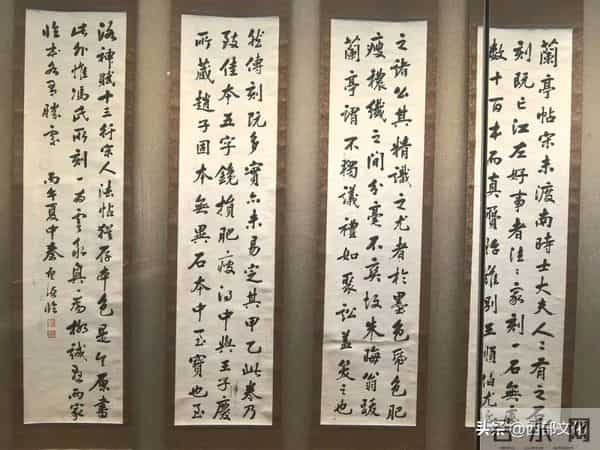 蘭亭帖宋未渡南時士大夫人〻有之石
刻既亡江左好事者往〻家刻一石無慮
數十百本而真贗始難別王順伯尤
之諸公其精識之尤者於墨色紙色肥
瘦穠纖之間分毫不爽故朱晦翁跋
蘭亭謂不獨議禮如聚訟蓋笑之也
然傳刻既多實亦未易定其甲乙此卷乃
致佳本五字鑱損肥瘦得中與王子慶
所藏趙子固本無異石本中至寶也至
洛神賦十三行宋人法帖猶存本色是原書
此外惟馮氏所刻一為永興一為柳誠懸兩家
臨本 丙午夏中 臨
头条@西部文化